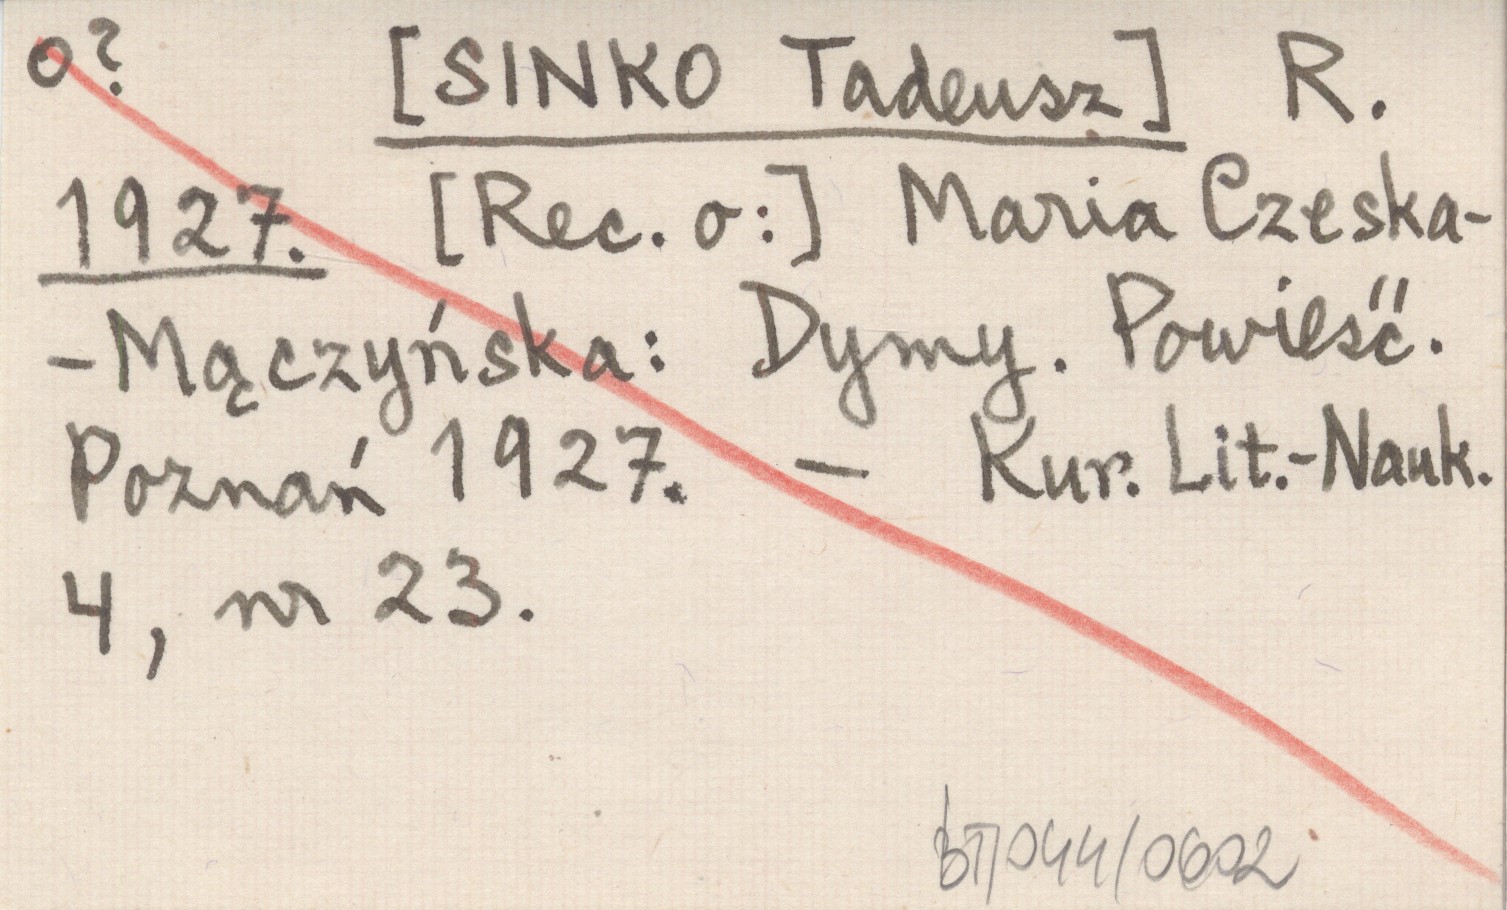 o? [SINKO Tadeusz] R.
1927. [Rec. o:] Maria Czeska-
-Mączyńska: Dymy. Powieść.
Poznań 1927. — Kur. Lit.-Nauk.
4, nr 23.
bT/044/0602